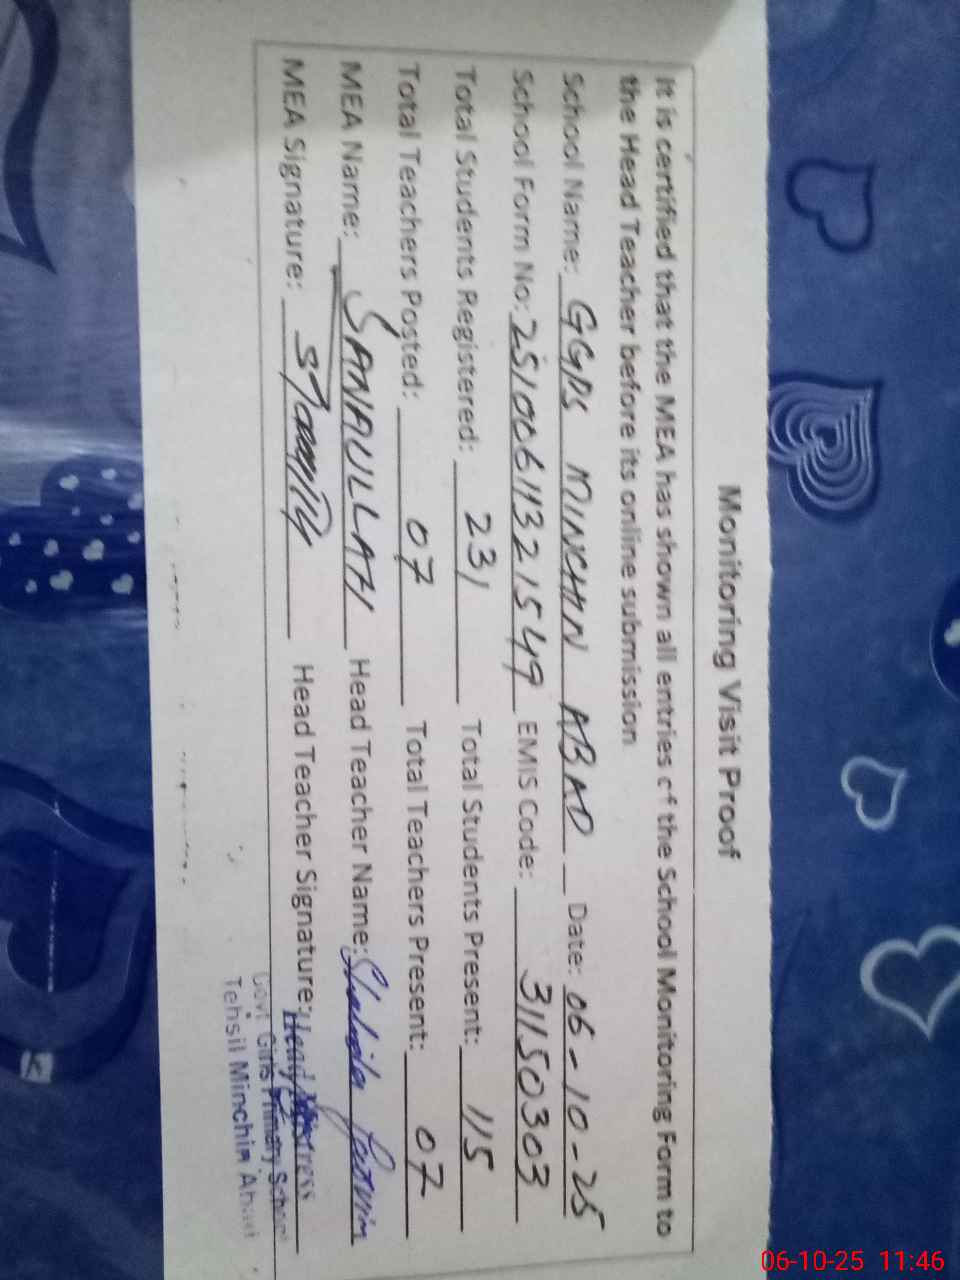 Monitoring Visit Proof
It is certified that the MEA has shown all entries of the School Monitoring Form to
the Head Teacher before its online submission
School Name: GGPS MINCHIN ABAD Date: 06-10-25
School Form No: 2510061132 1549 EMIS Code: 31150303
Total Students Registered: 231 Total Students Present: 115
Total Teachers Posted: 07 Total Teachers Present: 07
MEA Name: SANAULLAH Head Teacher Name: Shahida Parvin
MEA Signature: Head Teacher Signature: Head Mistress
Govt Girls Primary School
Tehsil Minchin Abad
06-10-25 11:46